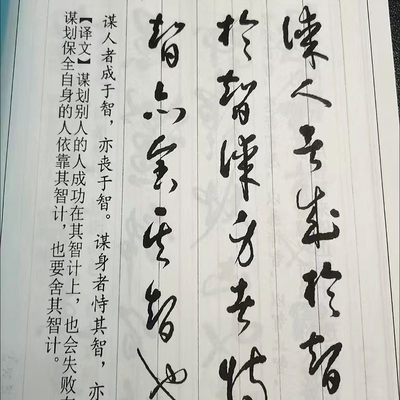 謀人者成於智
於智謀身者恃
智亦舍其智也
谋人者成于智，亦丧于智。谋身者恃其智，亦
【译文】谋划别人的人成功在其智计上，也会失败在
谋划保全自身的人依靠其智计，也要舍其智计。